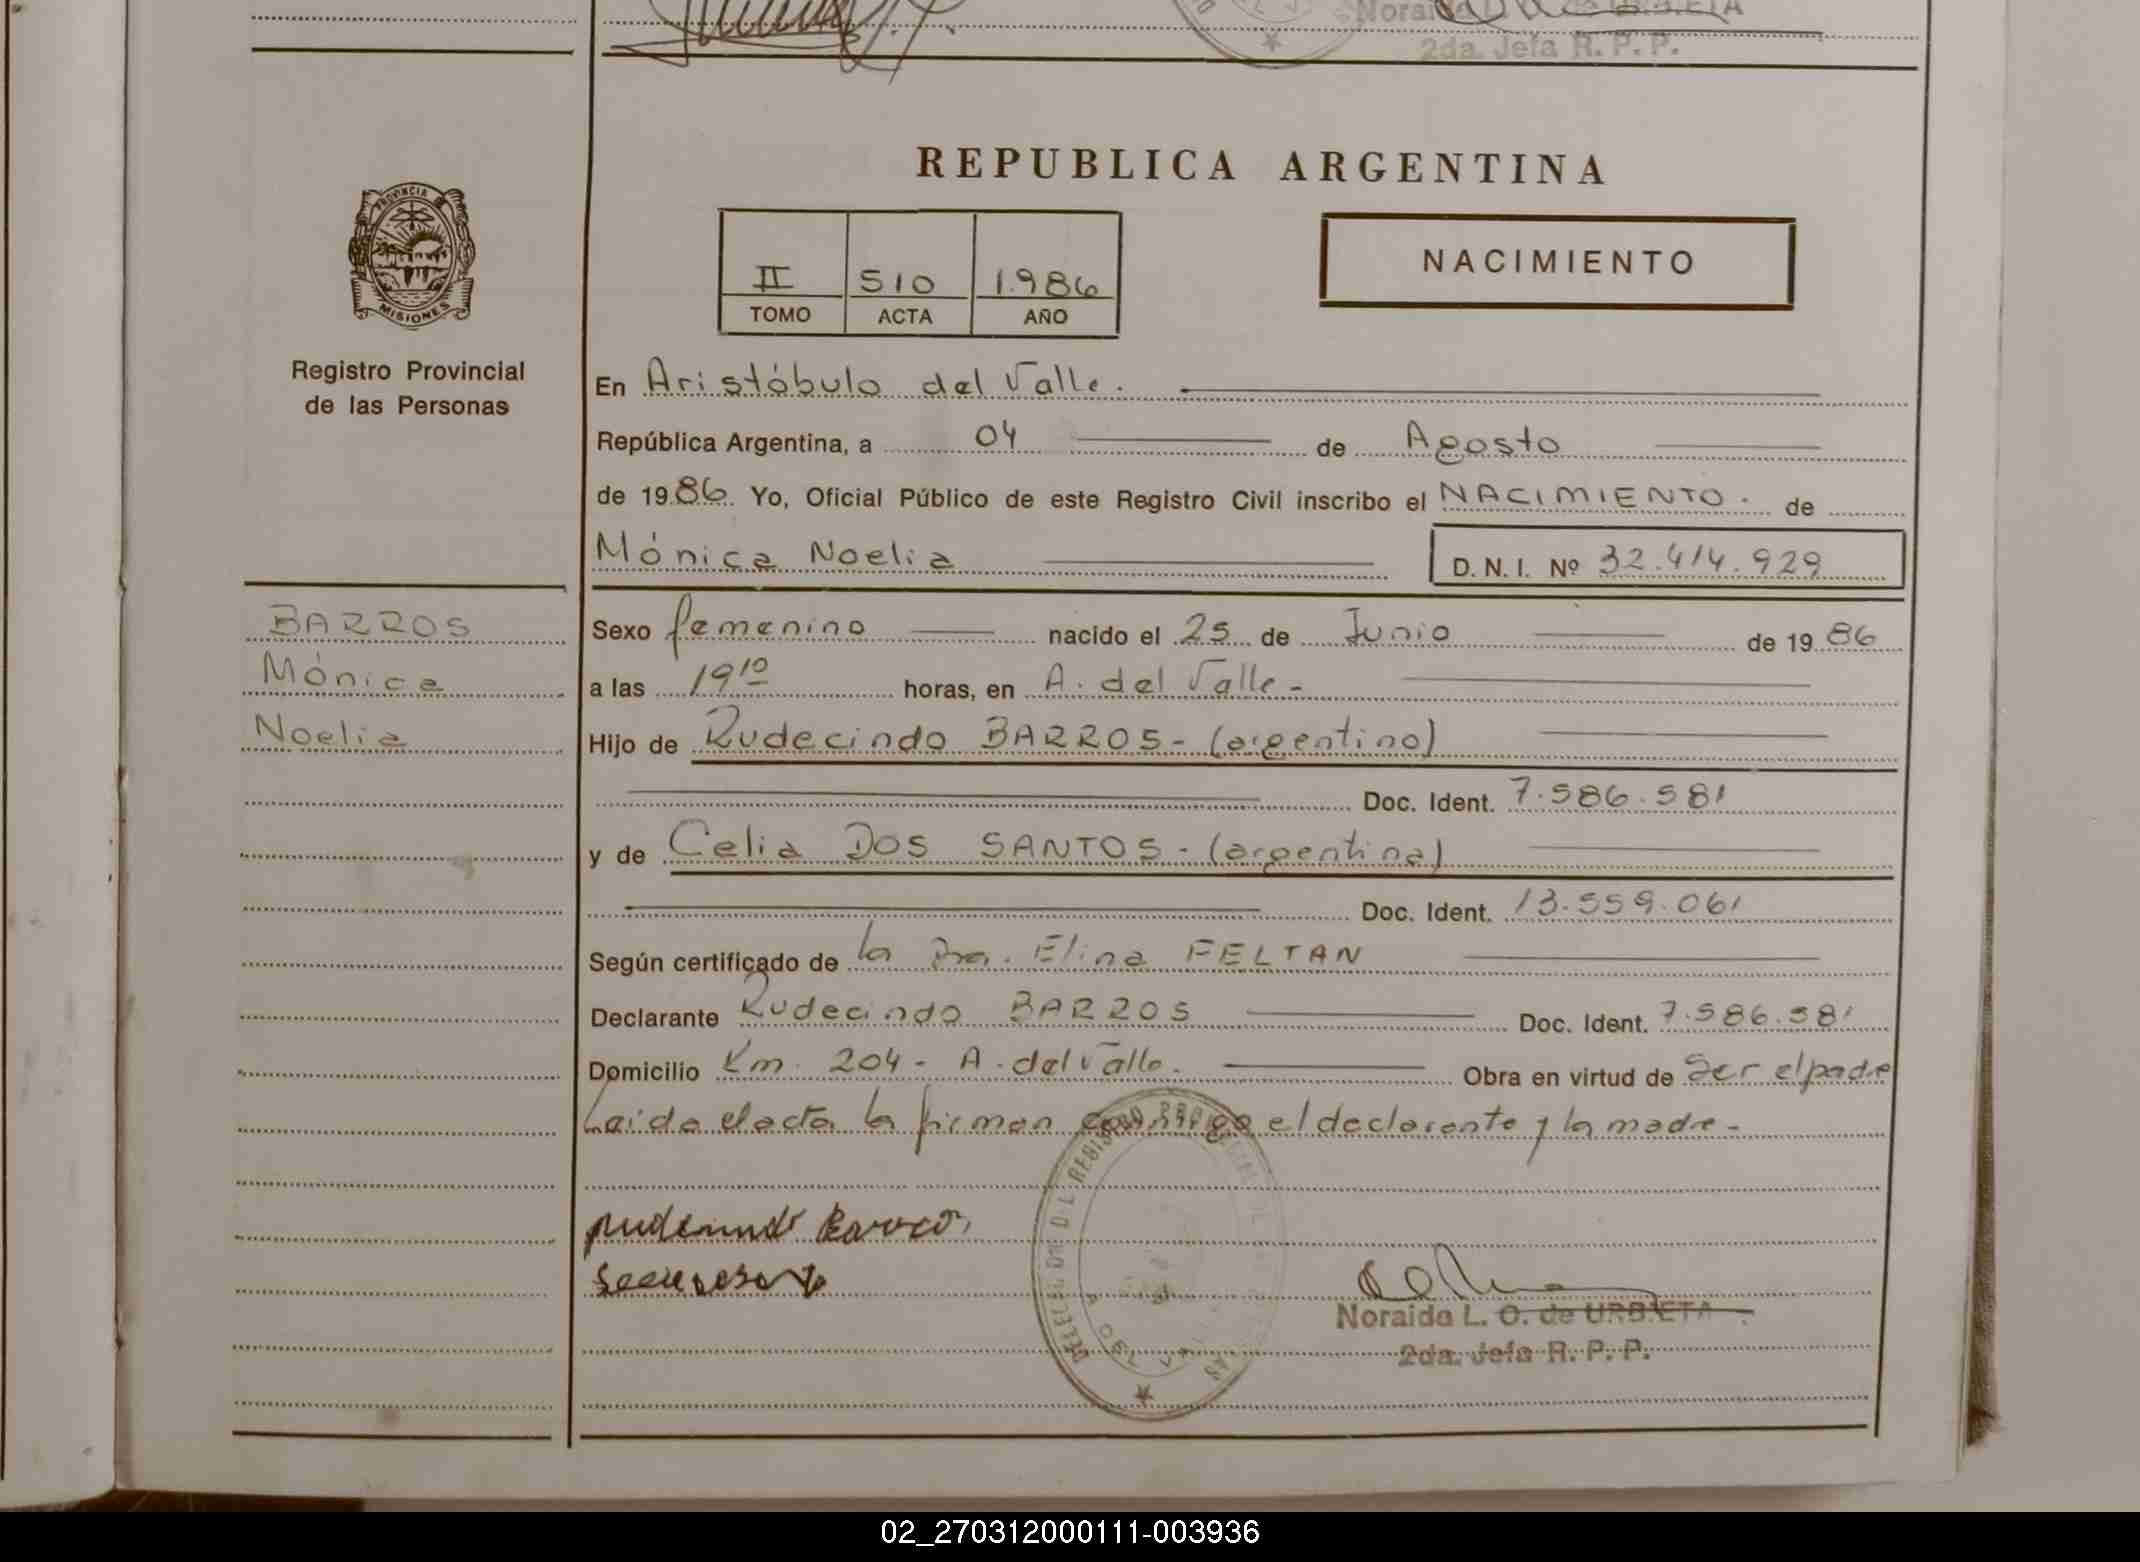 Noraida L. O. de URBIETA
2da. Jefa R. P. P.
PROVINCIA
MISIONES
Registro Provincial
de las Personas
BARROS
Mónica
Noelia
REPUBLICA ARGENTINA
II 510 1.986
TOMO ACTA AÑO
NACIMIENTO
En Aristóbulo del Valle.
República Argentina, a 04 de Agosto
de 1986. Yo, Oficial Público de este Registro Civil inscribo el NACIMIENTO. de
Mónica Noelia D. N. I. Nº 32.414.929
Sexo femenino nacido el 25 de Junio de 1986
a las 19 10 horas, en A. del Valle-
Hijo de Rudecindo BARROS- (argentino)
Doc. Ident. 7.586.581
y de Celia DOS SANTOS- (argentina)
Doc. Ident. 13.559.061
Según certificado de la Dra. Elina FELTAN
Declarante Rudecindo BARROS Doc. Ident. 7.586.581
Domicilio Km. 204- A. del Valle. Obra en virtud de Ser el padre
Leida el acta la firman conmigo el declarante y la madre-
Noraida L. O. de URBIETA
2da. Jefa R. P. P.
02_270312000111-003936